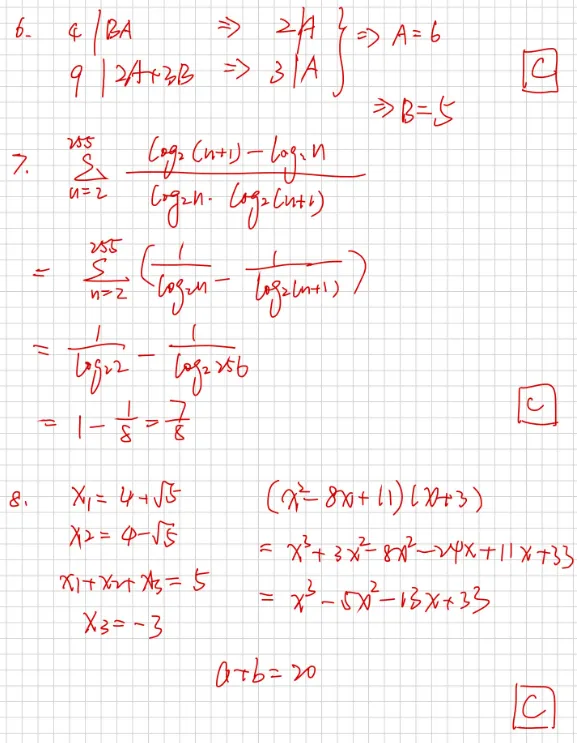 6. 4 | BA ⇒ 2|A } ⇒ A = 6
9 | 2A+3B ⇒ 3|A
⇒ B = 5
C
7. 255 Σ n=2 (log₂(n+1) - log₂n) / (log₂n · log₂(n+1))
= 255 Σ n=2 (1/log₂n - 1/log₂(n+1))
= 1/log₂2 - 1/log₂256
= 1 - 1/8 = 7/8
C
8. x₁ = 4+√5
x₂ = 4-√5
x₁+x₂+x₃ = 5
x₃ = -3
(x²-8x+11)(x+3)
= x³+3x²-8x²-24x+11x+33
= x³-5x²-13x+33
a+b = 20
C